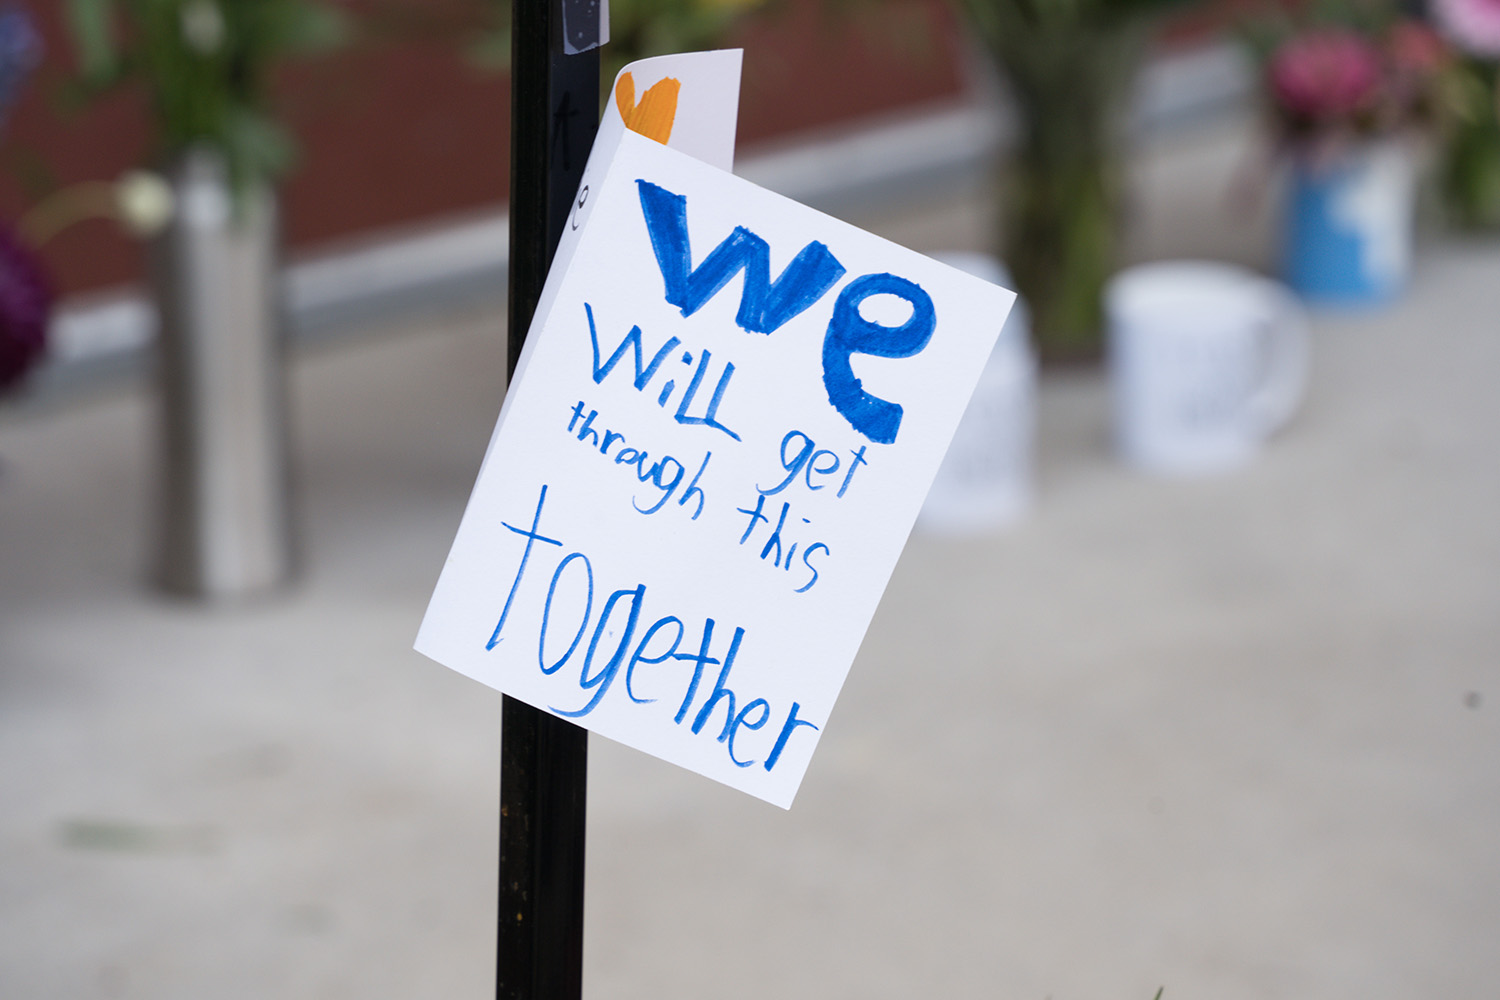 we
Will get
through this
together